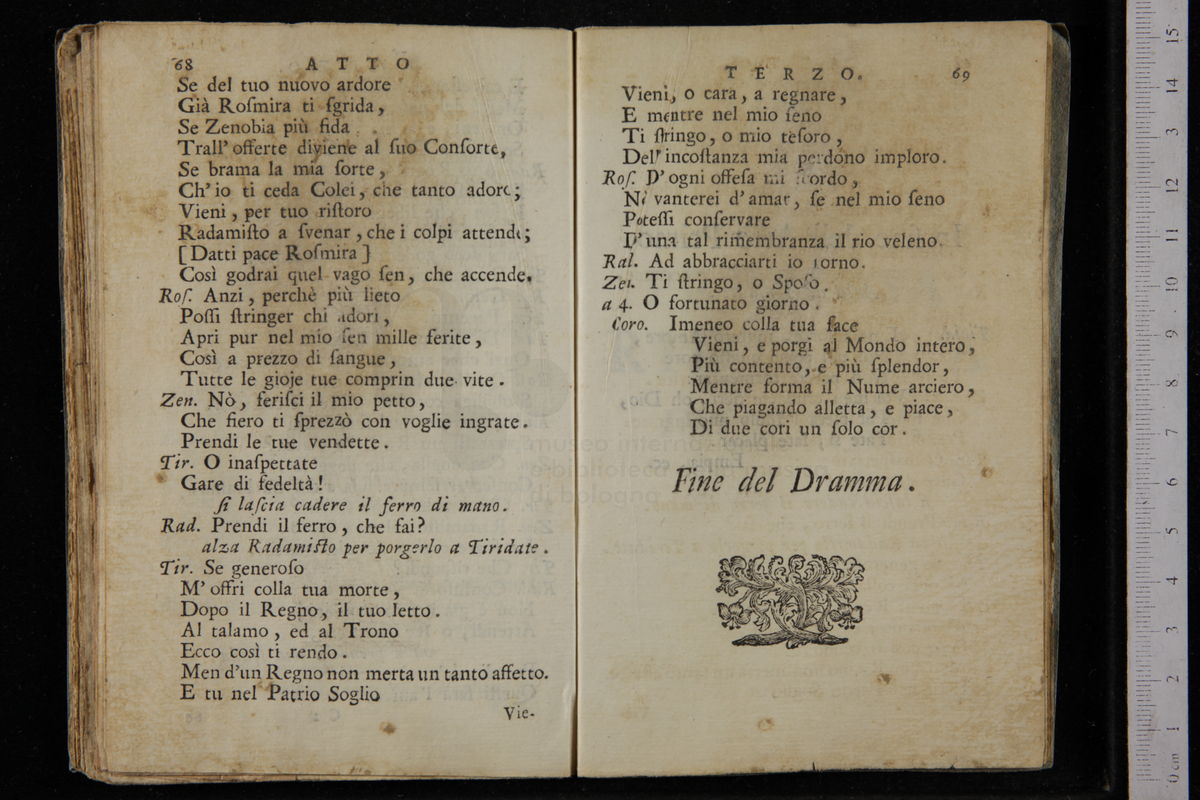 68 ATTO
Se del tuo nuovo ardore
Già Roſmira ti ſgrida,
Se Zenobia più fida
Trall' offerte diviene al ſuo Conſorte,
Se brama la mia ſorte,
Ch' io ti ceda Colei, che tanto adore;
Vieni, per tuo riſtoro
Radamiſto a ſvenar, che i colpi attende;
[Datti pace Roſmira]
Così godrai quel vago ſen, che accende.
Roſ. Anzi, perchè più lieto
Poſſi ſtringer chi adori,
Apri pur nel mio ſen mille ferite,
Così a prezzo di ſangue,
Tutte le gioje tue comprin due vite.
Zen. Nò, feriſci il mio petto,
Che fiero ti ſprezzò con voglie ingrate.
Prendi le tue vendette.
Tir. O inaſpettate
Gare di fedeltà!
ſi laſcia cadere il ferro di mano.
Rad. Prendi il ferro, che fai?
alza Radamiſto per porgerlo a Tiridate.
Tir. Se generoſo
M' offri colla tua morte,
Dopo il Regno, il tuo letto.
Al talamo, ed al Trono
Ecco così ti rendo.
Men d'un Regno non merta un tanto affetto.
E tu nel Patrio Soglio
Vie-
TERZO. 69
Vieni, o cara, a regnare,
E mentre nel mio ſeno
Ti ſtringo, o mio teſoro,
Dell' incoſtanza mia perdono imploro.
Roſ. D' ogni offeſa mi ſcordo,
Nè vanterei d' amar, ſe nel mio ſeno
Poteſſi conſervare
D' una tal rimembranza il rio veleno.
Ral. Ad abbracciarti io torno.
Zen. Ti ſtringo, o Spoſo.
a 4. O fortunato giorno.
Coro. Imeneo colla tua face
Vieni, e porgi al Mondo intero,
Più contento, e più ſplendor,
Mentre forma il Nume arciero,
Che piagando alletta, e piace,
Di due cori un ſolo cor.
Fine del Dramma.
museo interna
e biblioteca
di bologna
0 cm 1 2 3 4 5 6 7 8 9 10 11 12 13 14 15